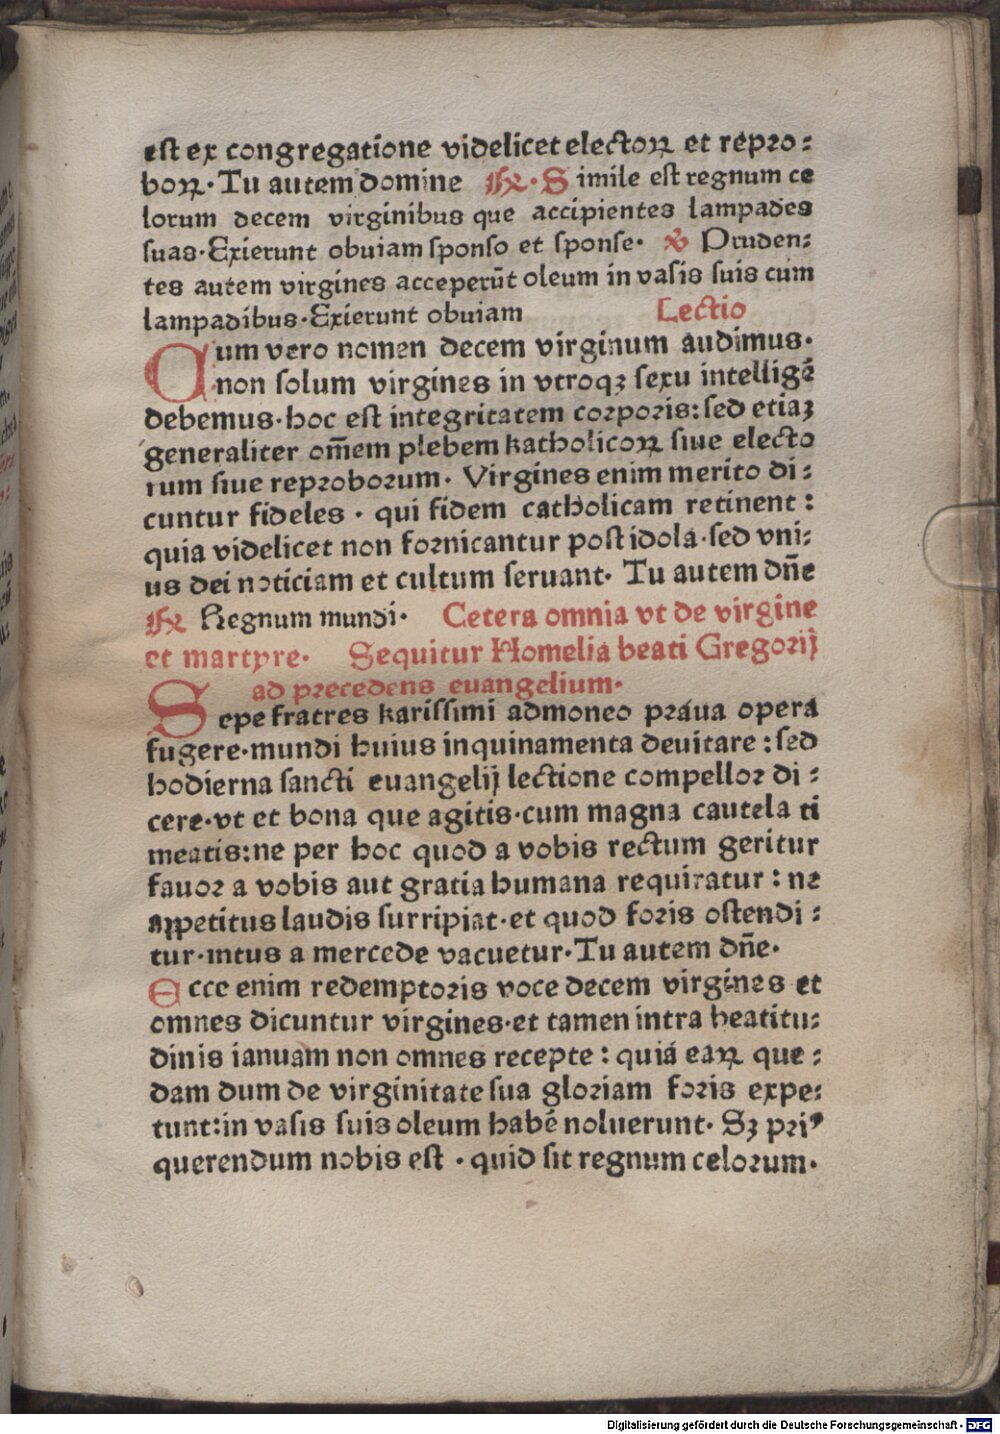 est ex congregatione videlicet electoꝝ et repro:
boꝝ·Tu autem domine ℟·Simile est regnum ce
lorum decem virginibus que accipientes lampades
suas·Exierunt obuiam sponso et sponse· ℣ Pruden:
tes autem virgines acceperūt oleum in vasis suis cum
lampadibus·Exierunt obuiam Lectio
Cum vero nomen decem virginum audimus·
non solum virgines in vtroqꝫ sexu intelligē
debemus·hoc est integritatem corporis:sed etiaꝫ
generaliter om̄em plebem katholicoꝝ siue electo
rum siue reproborum· Virgines enim merito di:
cuntur fideles · qui fidem catholicam retinent :
quia videlicet non fornicantur post idola·sed vni:
us dei noticiam et cultum seruant· Tu autem dn̄e
℟ Regnum mundi· Cetera omnia vt de virgine
et martyre· Sequitur Homelia beati Gregorij
ad precedens euangelium·
Sepe fratres karissimi admoneo praua opera
fugere·mundi huius inquinamenta deuitare :sed
hodierna sancti euangelij lectione compellor di :
cere·vt et bona que agitis·cum magna cautela ti
meatis:ne per hoc quod a vobis rectum geritur
fauor a vobis aut gratia humana requiratur : ne
appetitus laudis surripiat·et quod foris ostendi :
tur·intus a mercede vacuetur·Tu autem dn̄e·
Ecce enim redemptoris voce decem virgines et
omnes dicuntur virgines·et tamen intra beatitu:
dinis ianuam non omnes recepte : quia eaꝝ que :
dam dum de virginitate sua gloriam foris expe:
tunt:in vasis suis oleum habē noluerunt· Sꝫ priꝰ
querendum nobis est · quid sit regnum celorum·
Digitalisierung gefördert durch die Deutsche Forschungsgemeinschaft - DFG